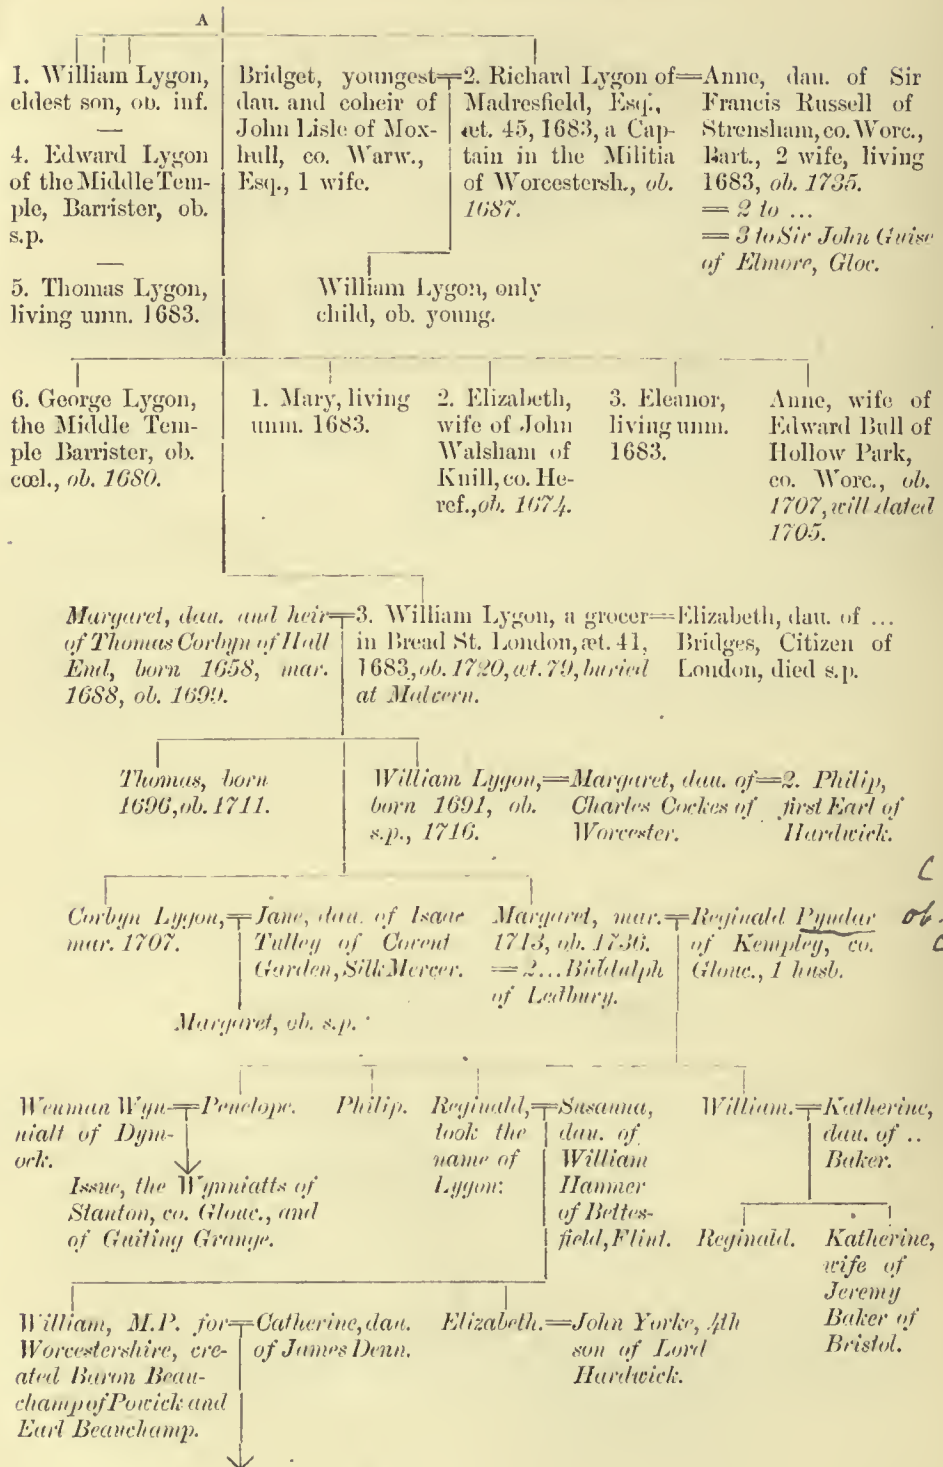 A
1. William Lygon,
eldest son, ob. inf.
—
4. Edward Lygon
of the Middle Tem-
ple, Barrister, ob.
s.p.
—
5. Thomas Lygon,
living unm. 1683.
Bridget, youngest
dau. and coheir of
John Lisle of Mox-
hull, co. Warw.,
Esq., 1 wife.
2. Richard Lygon of
Madresfield, Esq.,
æt. 45, 1683, a Cap-
tain in the Militia
of Worcestersh., ob.
1687.
Anne, dau. of Sir
Francis Russell of
Strensham, co. Worc.,
Bart., 2 wife, living
1683, ob. 1735.
= 2 to ...
= 3 to Sir John Guise
of Elmore, Gloc.
William Lygon, only
child, ob. young.
6. George Lygon,
the Middle Tem-
ple Barrister, ob.
cœl., ob. 1680.
1. Mary, living
unm. 1683.
2. Elizabeth,
wife of John
Walsham of
Knill, co. He-
ref., ob. 1674.
3. Eleanor,
living unm.
1683.
Anne, wife of
Edward Bull of
Hollow Park,
co. Worc., ob.
1707, will dated
1705.
Margaret, dau. and heir
of Thomas Corbyn of Hall
End, born 1658, mar.
1688, ob. 1699.
3. William Lygon, a grocer
in Bread St. London, æt. 41,
1683, ob. 1720, æt. 79, buried
at Malvern.
Elizabeth, dau. of ...
Bridges, Citizen of
London, died s.p.
Thomas, born
1696, ob. 1711.
William Lygon,
born 1691, ob.
s.p., 1716.
Margaret, dau. of
Charles Cockes of
Worcester.
2. Philip,
first Earl of
Hardwick.
Corbyn Lygon,
mar. 1707.
Jane, dau. of Isaac
Tulley of Covent
Garden, Silk Mercer.
Margaret, mar.
1713, ob. 1736.
= 2 ... Biddulph
of Ledbury.
Reginald Pyndar
of Kempley, co.
Glouc., 1 husb.
ob.
Margaret, ob. s.p.
Wenman Wyn-
niatt of Dym-
ock.
Penelope.
Philip.
Reginald,
took the
name of
Lygon.
Susanna,
dau. of
William
Hanmer
of Bettes-
field, Flint.
William.
Katherine,
dau. of ..
Baker.
Issue, the Wynniatts of
Stanton, co. Glouc., and
of Guiting Grange.
Reginald.
Katherine,
wife of
Jeremy
Baker of
Bristol.
William, M.P. for
Worcestershire, cre-
ated Baron Beau-
champ of Powick and
Earl Beauchamp.
Catherine, dau.
of James Denn.
Elizabeth.
John Yorke, 4th
son of Lord
Hardwick.